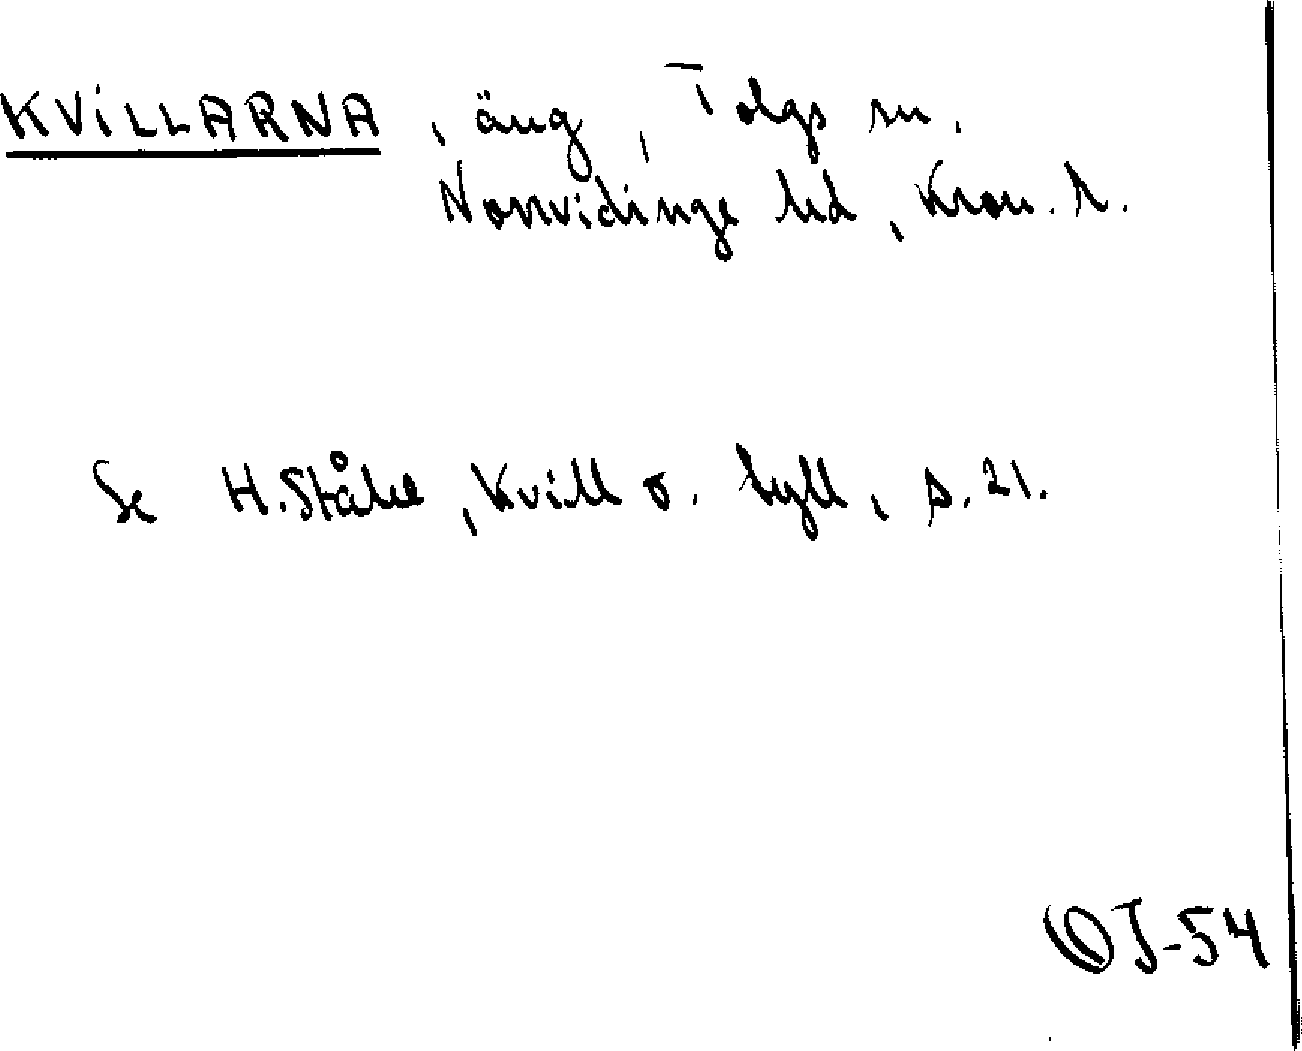 KVILLARNA, äng, Tolgs sn.
Norrvidinge hd, Kron. l.
Se H. Ståhl, Kvill o. tyll, s. 21.
OJ-54